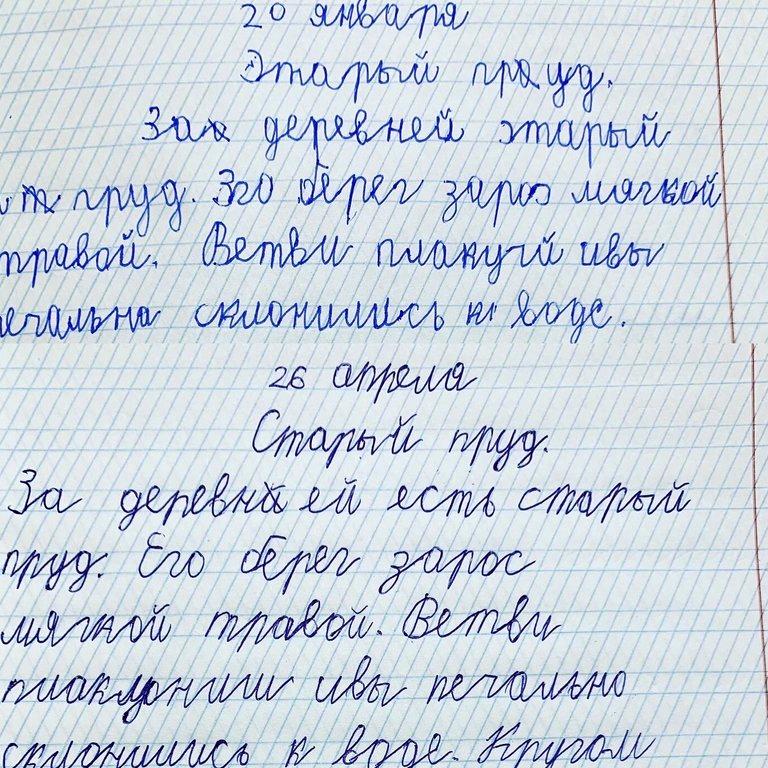 20 января
Этарый пруд.
За деревней этарый
пруд. Эго берег зароэ мягкой
травой. Ветви плакучй ивы
ечальна склонились к воде.
26 апреля
Старый пруд.
За деревней есть старый
пруд. Его берег зарос
мягкой травой. Ветви
ивы печально
склонишись к воде. Кругом